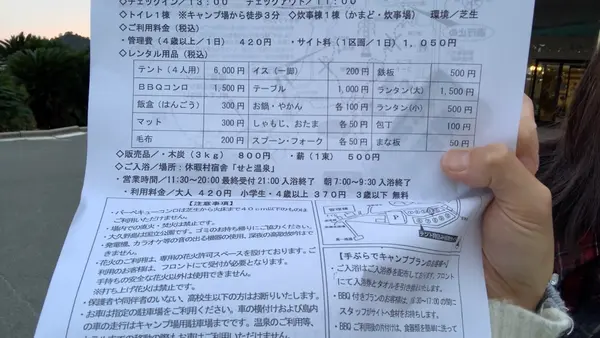 ◇チェックイン/13:00 チェックアウト/11:00
◇トイレ1棟 ※キャンプ場から徒歩3分 ◇炊事棟1棟(かまど・炊事場) 環境/芝生
◇ご利用料金(税込)
・管理費(4歳以上/1日) 420円 ・サイト料(1区画/1日) 1,050円
◇レンタル用品(税込)
テント(4人用) 6,000円 イス(一脚) 200円 鉄板 500円
BBQコンロ 1,500円 テーブル 1,000円 ランタン(大) 1,500円
飯盒(はんごう) 300円 お鍋・やかん 各100円 ランタン(小) 500円
マット 300円 しゃもじ、おたま 各50円 包丁 100円
毛布 200円 スプーン・フォーク 各50円 まな板 50円
◇販売品/・木炭(3kg) 800円 ・薪(1束) 500円
◇ご入浴/場所:休暇村宿舎「せと温泉」
・営業時間/11:30~20:00 最終受付 21:00 入浴終了 朝7:00~9:30 入浴終了
・利用料金/大人 420円 小学生・4歳以上 370円 3歳以下 無料
【注意事項】
・バーベキューコンロは芝生から火床まで40cm以下のものは
ご利用いただけません。
・場内での直火・焚火は禁止です。
・大久野島は国立公園です。ゴミのお持ち帰りにご協力ください。
・発電機、カラオケ等の音の出る機器の使用、深夜の高歌放吟はで
きません。
・花火のご利用は、専用の花火許可スペースを設けております。ご利
用のお客様は、フロントにて受付が必要となります。
手持ちの安全な花火以外は使用できません。
※打ち上げ花火は禁止です。
・保護者や同伴者のいない、高校生以下の方はお断りいたします。
・お車は指定の駐車場をご利用ください。車の横付けおよび島内
の車の走行はキャンプ場用駐車場までです。温泉のご利用等、
P
【手ぶらでキャンププランのお客様へ】
・ご入浴はご入浴券を配布しております。フロント
にて入浴券とタオルを引き
・BBQ付きプランのお客様は、
スタッフがサイトへ食材をお持ちします。
・BBQご利用後の片付けは、食器類を簡単に洗って